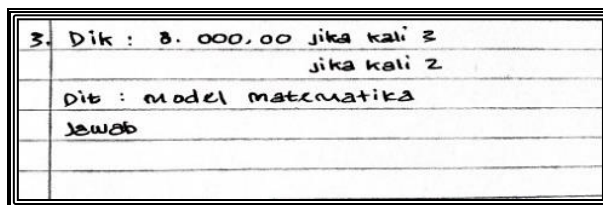 3. Dik : 8. 000,00 jika kali 3
jika kali 2
Dit : model matematika
Jawab